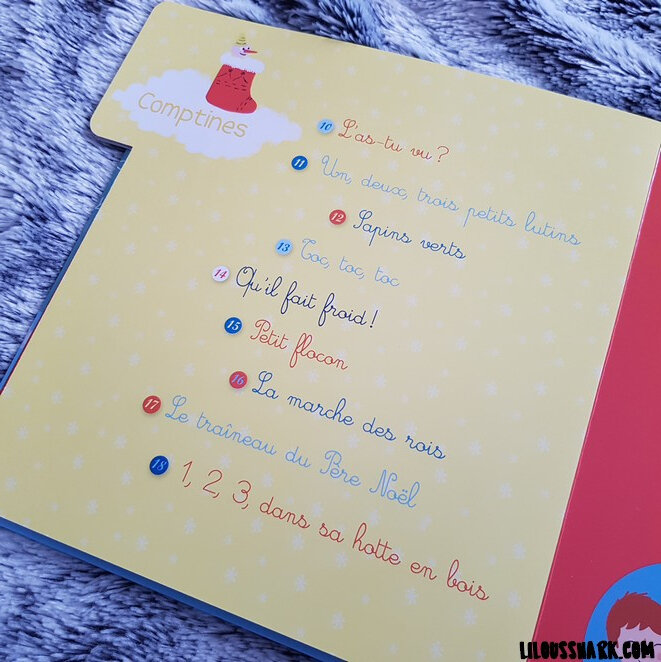 Comptines
10 L'as-tu vu ?
11 Un, deux, trois petits lutins
12 Sapins verts
13 Toc, toc, toc
14 Qu'il fait froid !
15 Petit flocon
16 La marche des rois
17 Le traîneau du Père Noël
18 1, 2, 3, dans sa hotte en bois
LILOUSSHARK.COM